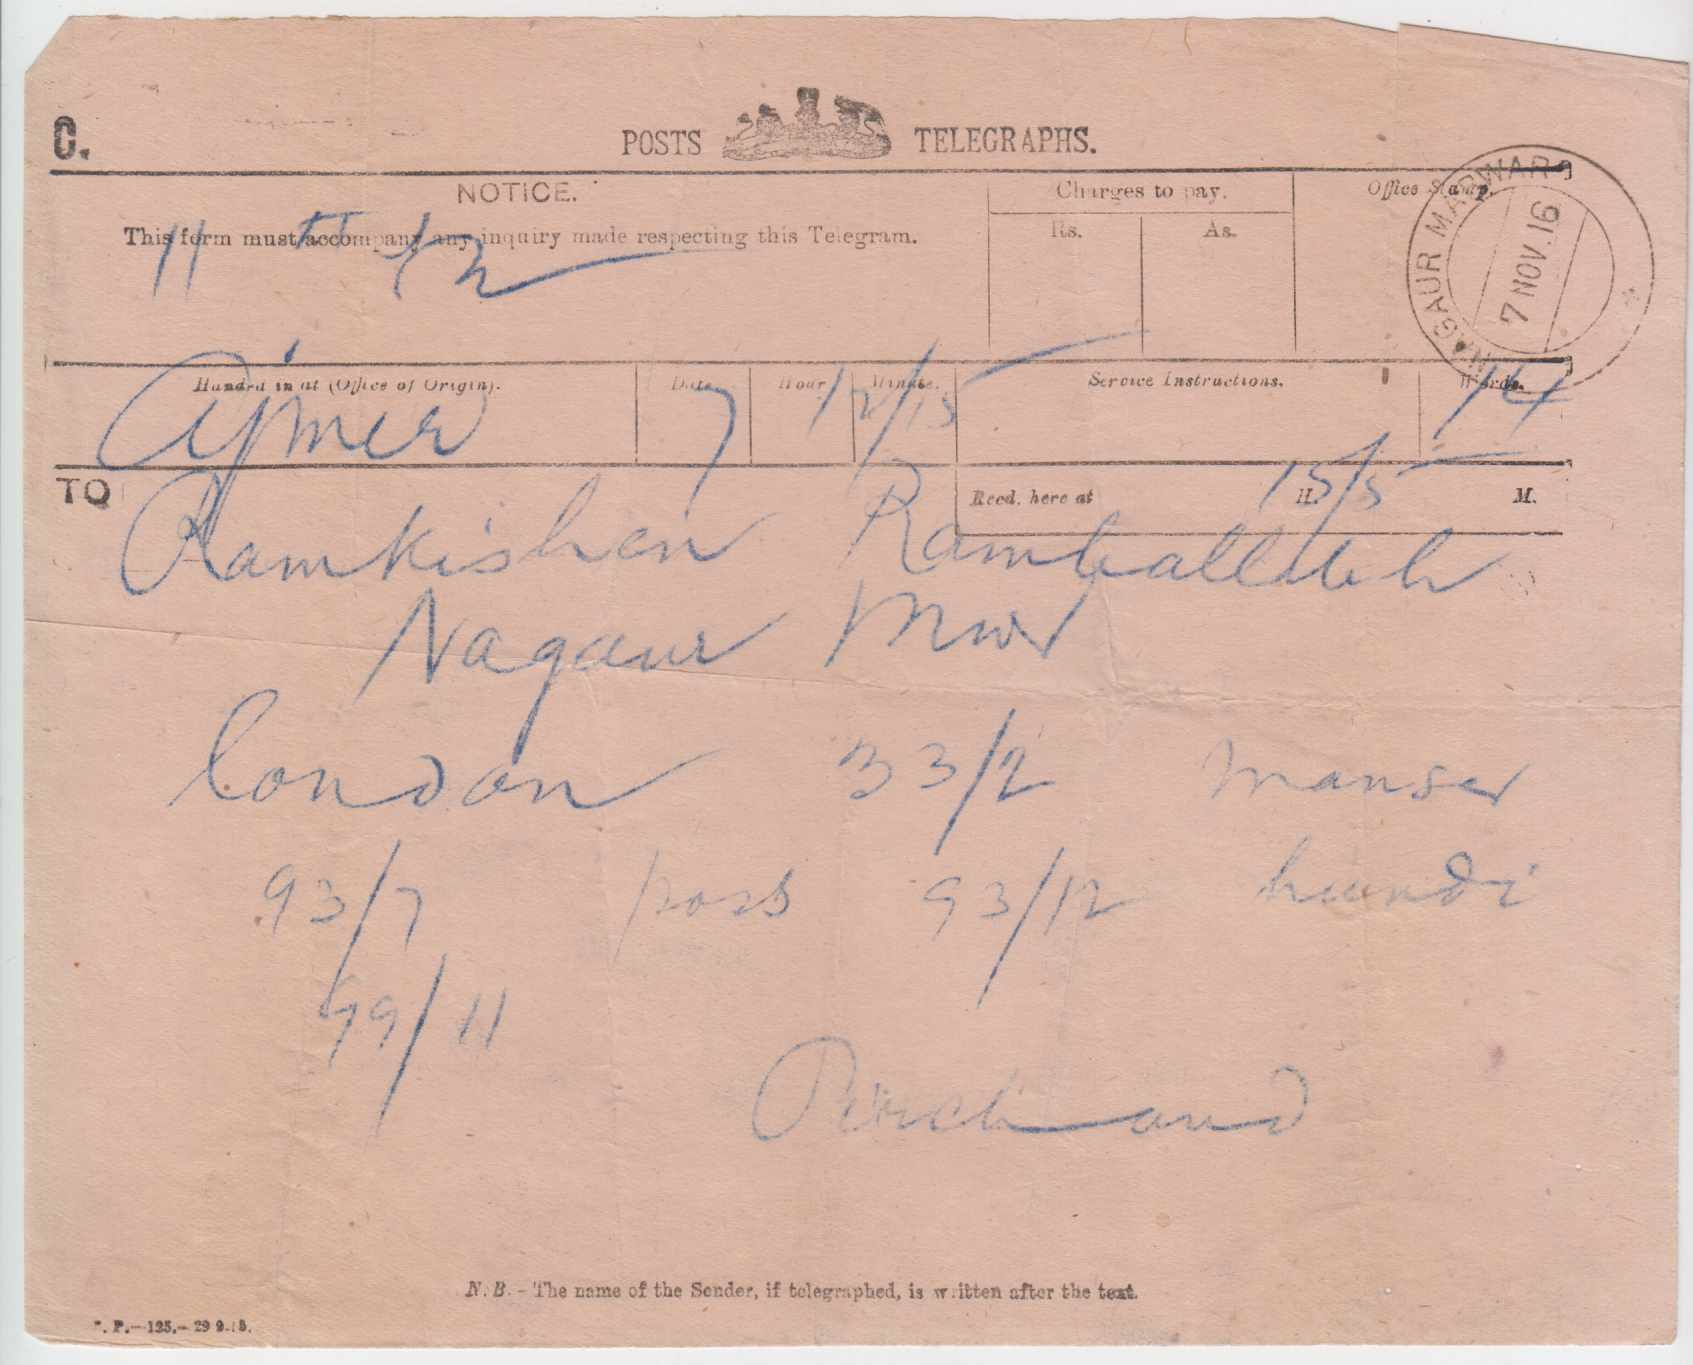 C.
POSTS TELEGRAPHS.
NOTICE.
This form must accompany any inquiry made respecting this Telegram.
Charges to pay.
Rs. As.
Office Stamp.
NAGAUR MARWAR
7 NOV. 16
Handed in at (Office of Origin). Date Hour Minute. Service Instructions. Words.
Ajmer 7 12/15 14
TO
Recd. here at 15/5 H. M.
Ramkishen Ramballabh
Nagaur Mwr
London 33/2 manser
93/7 poss 93/12 hundi
99/11
N.B.- The name of the Sender, if telegraphed, is written after the text.